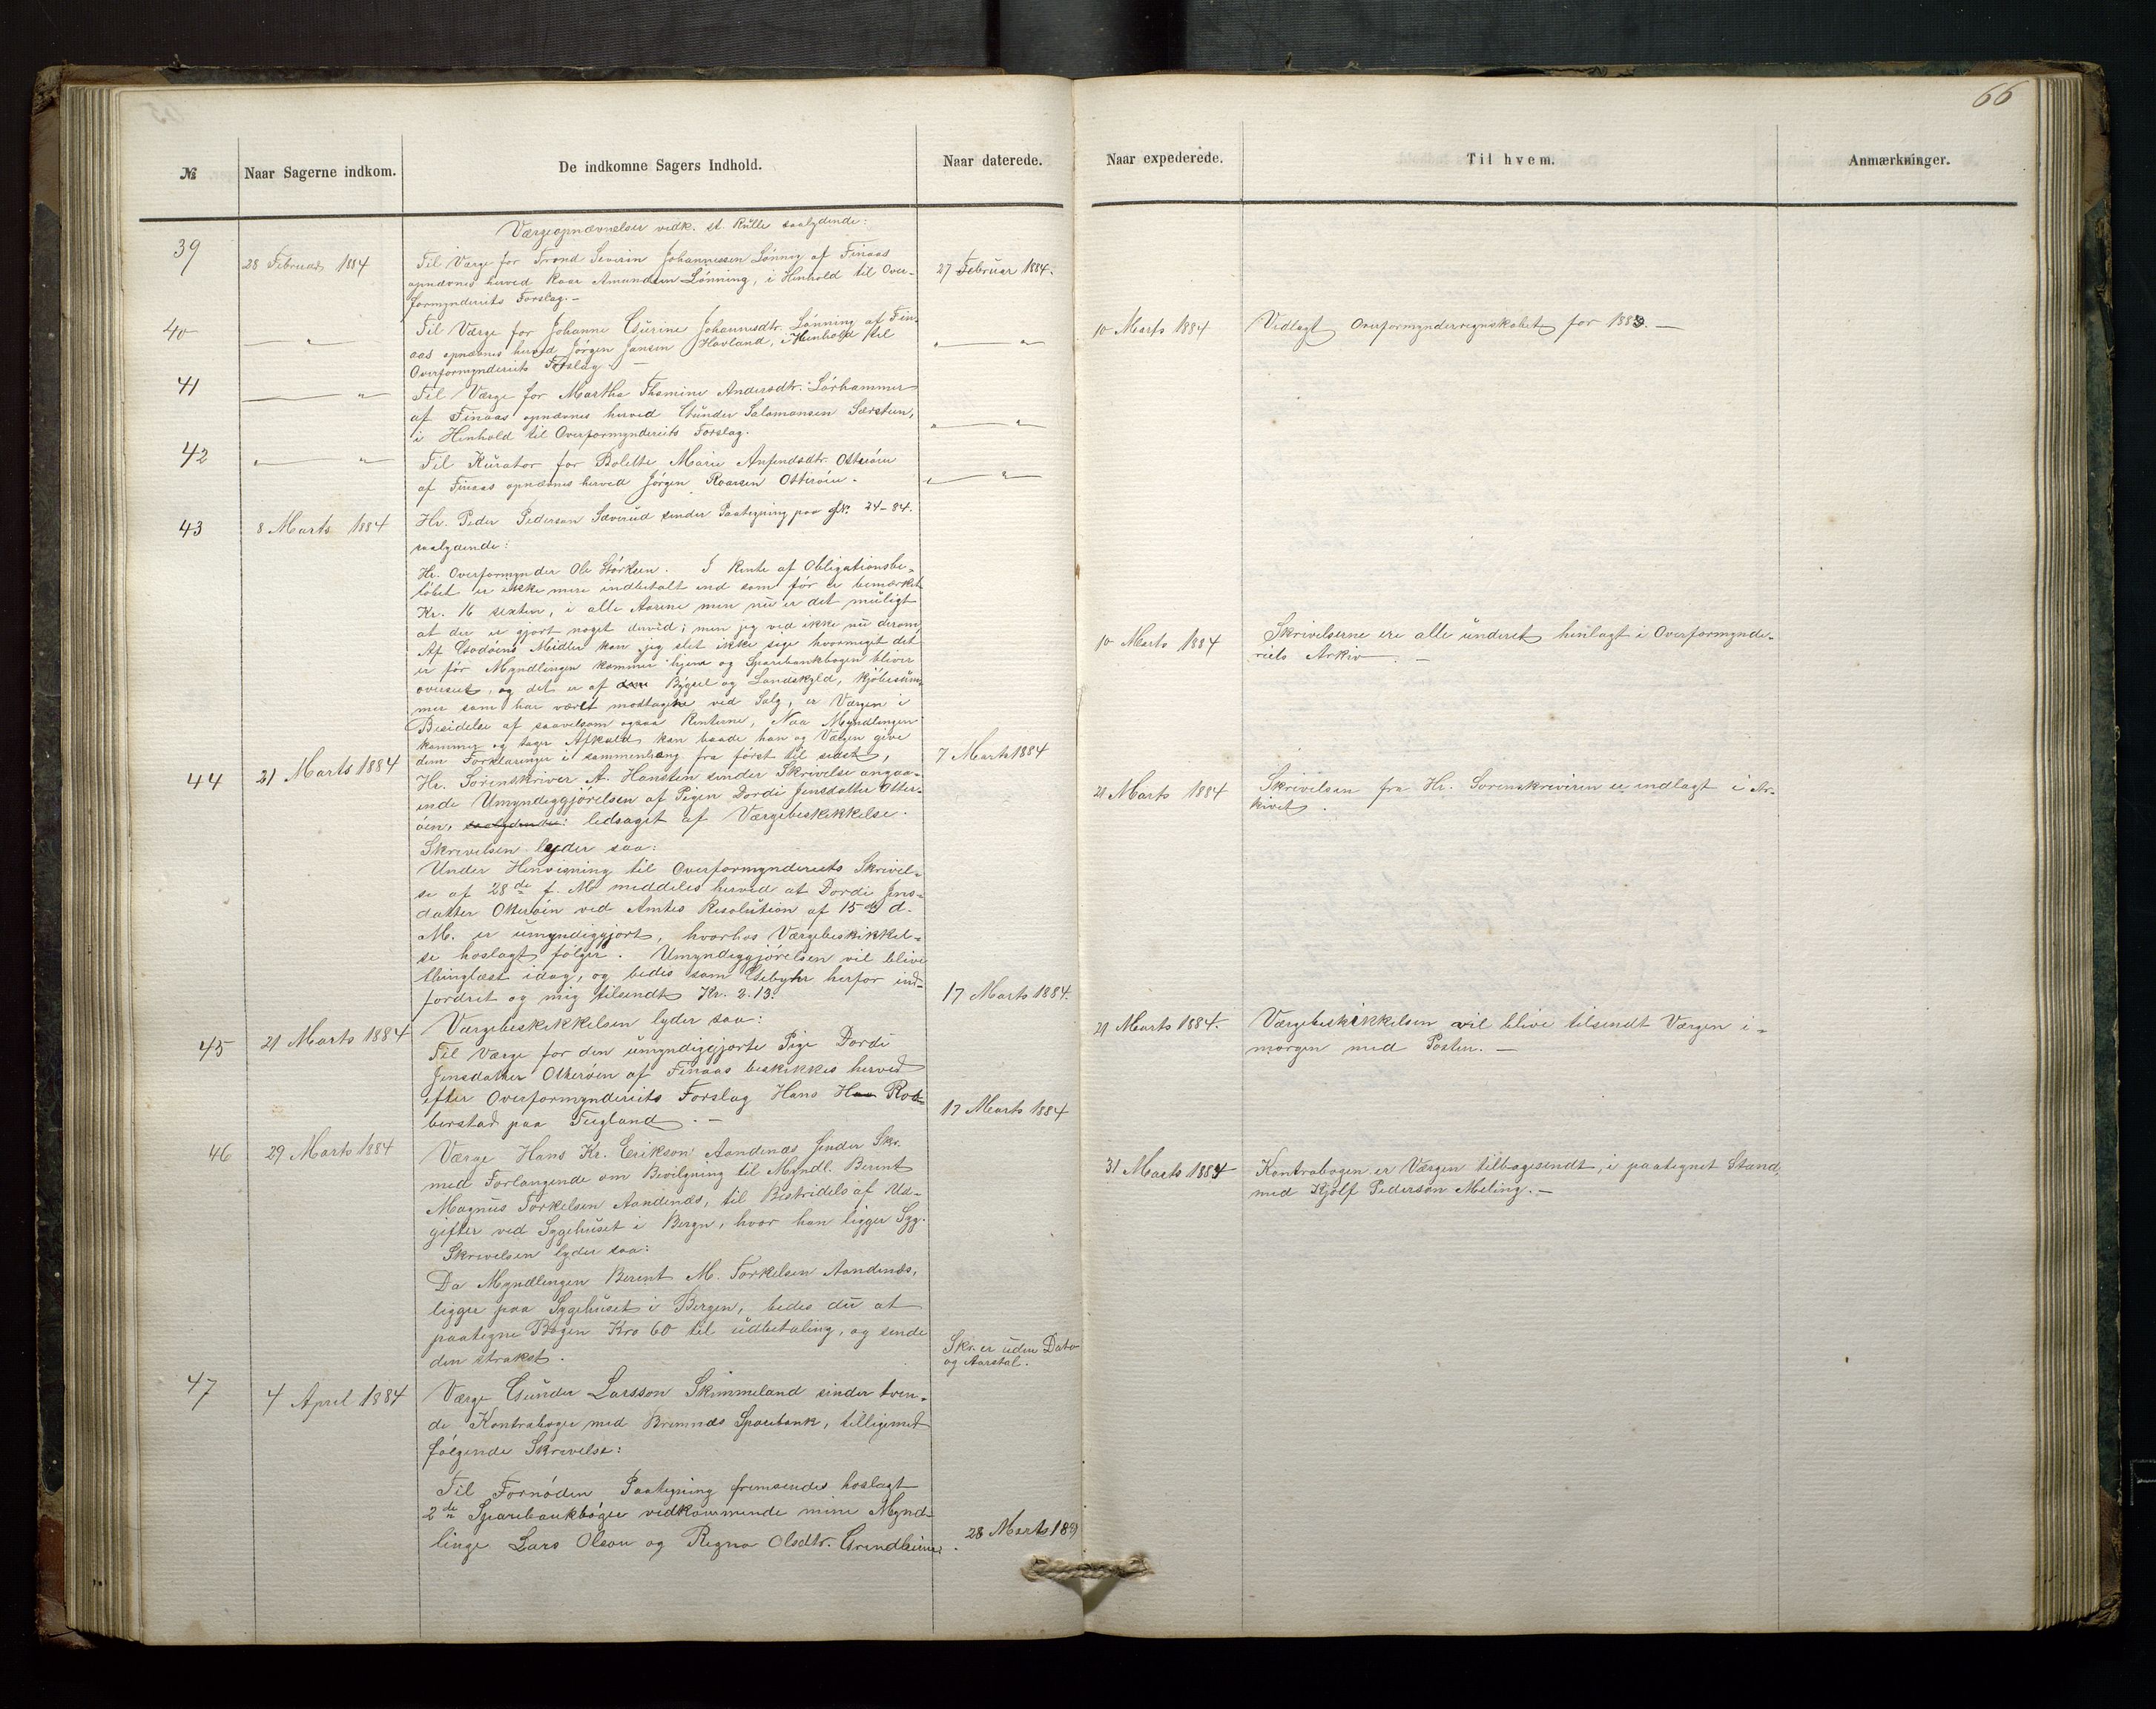 66
№ Naar Sagerne indkom. De indkomne Sagers Indhold. Naar daterede. Naar expederede. Til hvem. Anmærkninger.
Værgeopnævnelser vedk. st Rulle saalydende:
39 28 Februar 1884 Til Værge for Trond Severin Johannessen Lønnig af Finaas 27 Februar 1884.
opnævnes herved Roar Amundsen Lønning, i Henhold til Over-
formynderiets Forslag.-
40 — " Til Værge for Johanne Gurine Johannesdtr. Lønning af Fin- 10 Marts 1884 Vidlagt Overformynderregnskabet for 1883. —
aas opnævnes herved Jørgen Jansen Hovland, i Henhold til " — "
Overformynderiets Forslag. —
41 — " Til Værge for Martha Thomine Andersdtr. Lørhammer
af Finaas opnævnes herved Gunder Salamonsen Særsten, " — "
i Henhold til Overformynderiets Forslag.
42 " — " Til Kurator for Bolette Marie Anfindsdtr. Otterøien
af Finaas opnævnes herved Jørgen Roarsen Otterøien. " — "
43 8 Marts 1884 Hr. Peder Pederson Sæverud sender Paategning paa No. 24-84.
saalydende:
Hr. Overformynder Ole Størksen. I Rente af Obligationsbe-
løbet er ikke mere indbetalt end som før er bemærket
Kr. 16 sexten, i alle Aarene men nu er det muligt
at der er gjort noget derved; men jeg ved ikke nu derom 10 Marts 1884 Skrivelserne ere alle underet henlagt i Overformynde-
Af Midler kan jeg slet ikke sige hvormeget det riets Arkiv. —
er før Myndlingen kommer hjem og Sparebankbogen bliver
overseet, og det er af Bygsel og Landskyld, Kjøbesum-
mer som har været modtagne ved Salg, er Værgen i
Besidelse af saavelsom ogsaa Renterne, Naa Myndlingen
kommer og tager Afkald kan baade han og Værgen give
dem Forklaringer i sammenhæng fra først til sidst, 7 Marts 1884
44 21 Marts 1884 Hr. Sorenskriver A. Hansten sender Skrivelse angaa- 21 Marts 1884 Skrivelsen fra Hr. Sorenskriveren er indlagt i Ar-
ende Umyndiggjørelsen af Pigen Dordi Jensdatter Otter- kivet.
øien, saalydende: ledsaget af Værgebeskikkelse.
Skrivelsen lyder saa:
Under Henvisning til Overformynderiets Skrivel-
se af 28de f. M. meddeles herved at Dordi Jens-
datter Otterøien ved Amtes Resolution af 15de d.
M. er umyndiggjort, hvorhos Værgebeskikkel-
se hoslagt følger. Umyndiggjørelsen vil blive
thinglæst idag, og bedes som Gebyhr herfor ind-
fordret og mig tilsendt Kr. 2.13. 17 Marts 1884.
45 21 Marts 1884 Værgebeskikkelsen lyder saa: 21 Marts 1884. Værgebeskikkelsen vil blive tilsendt Værgen i-
Til Værge for den umyndiggjorte Pige Dordi morgen med Posten. —
Jensdatter Otterøien af Finaas beskikkes herved
efter Overformynderiets Forslag Hans Rob-
berstad paa Fugland. — 17 Marts 1884
46 29 Marts 1884 Værge Hans Kr. Erikson Aandenæs sender Skr. 31 Marts 1884 Kontrabogen er Værgen tilbagesendt, i paategnet Stand,
med Forlangende om Bevilgning til Myndl. Berent med Kjølf Pederson Meling. —
Magnus Torkelsen Aandenæs, til Bestridels af Ud-
gifter ved Sygehuset i Bergn, hvor han ligger Syg.
Skrivelsen lyder saa:
Da Myndlingen Berent M. Torkelsen Aandenæs,
ligger paa Sygehuset i Bergen, bedes du at
paategne Bogen Kro 60 til udbetaling, og sende
den strakst. Skr. er uden Dato
og Aarstal.
47 4 April 1884 Værge Gunder Larsson Skimmeland sender tven-
de Kontrabøger med Bremnæs Sparebank, tilligemed
følgende Skrivelse:
Til Fornøden Paategning fremsendes hoslagt
2de Sparebankbøger vedkommende mine Mynd-
linge Lars Olson og Regna Olsdtr. Grindheim. 28 Marts 188